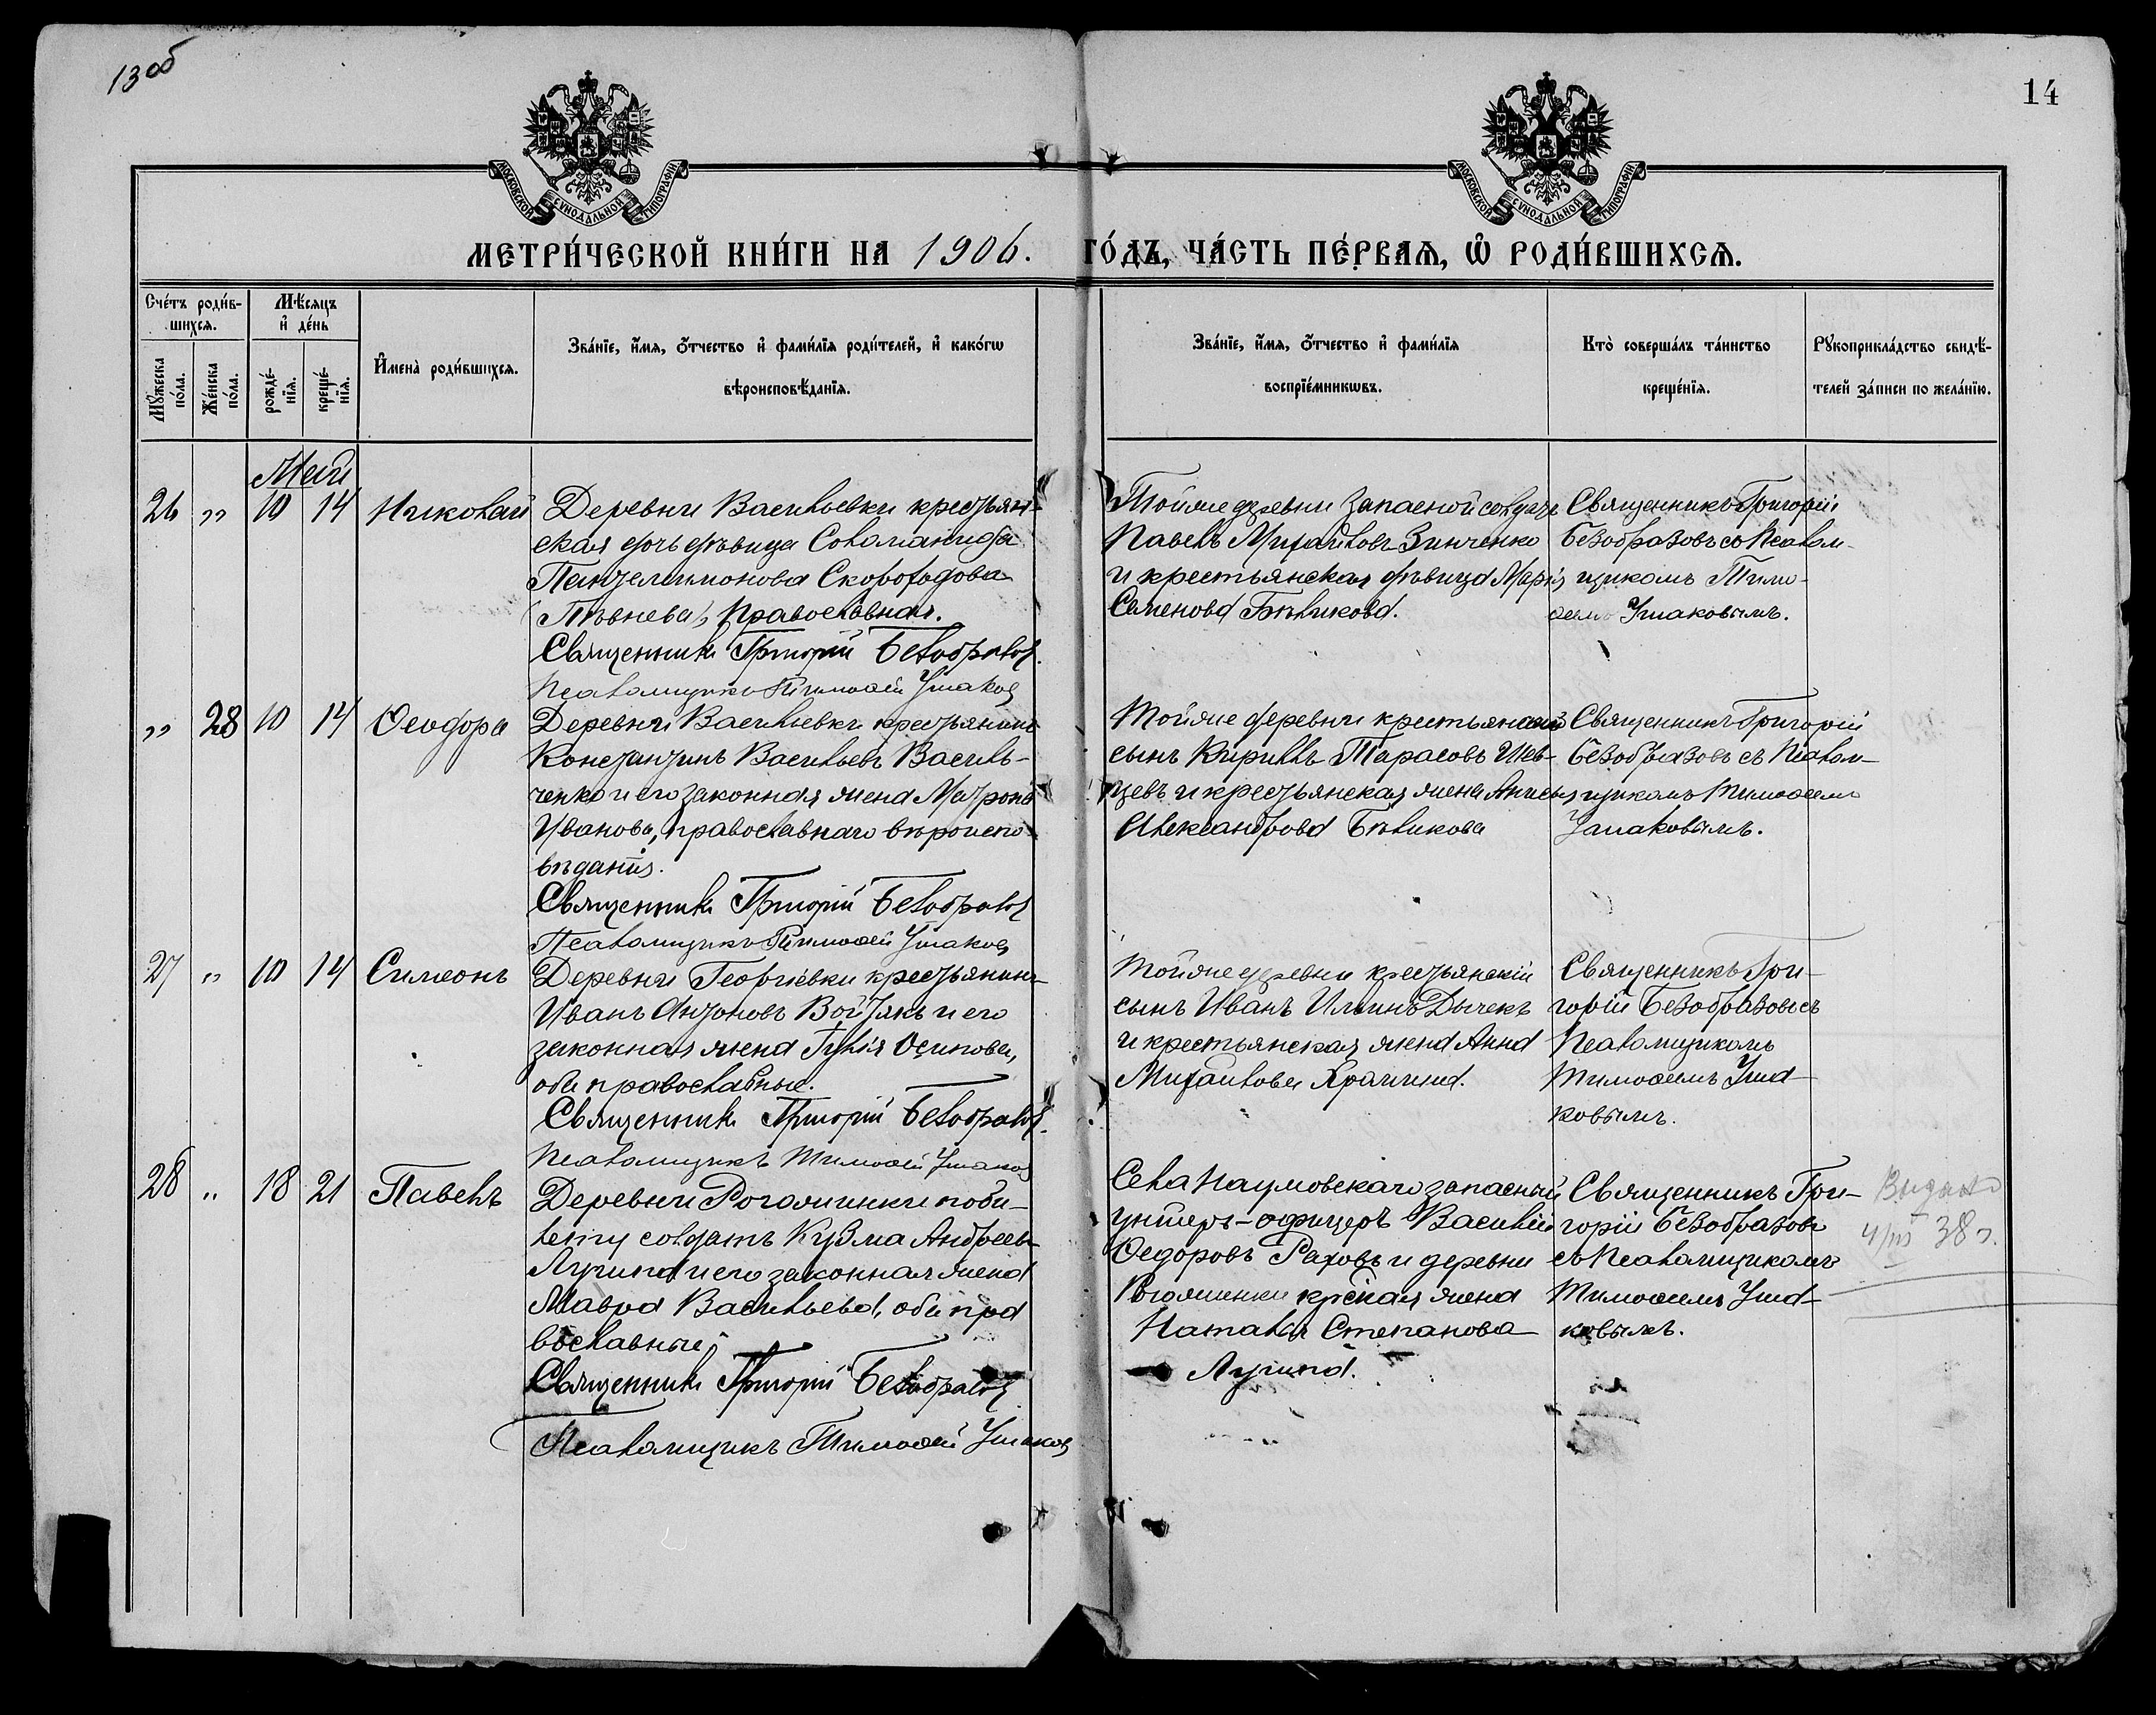 13 об
14
МОСКОВСКОЙ СѴНОДАЛЬНОЙ ТИПОГРАФІИ
МОСКОВСКОЙ СѴНОДАЛЬНОЙ ТИПОГРАФІИ
МЕТРИ́ЧЕСКОЙ КНИ́ГИ НА 1906. ГО́ДЪ, ЧА́СТЬ ПЕ́РВАѦ, Ѽ РОДИ́ВШИХСѦ.
Сче́тъ роди́в-
шихсѧ.
Мѣ́сяцъ
и҆ де́нь
Мꙋ́жеска по́ла.
Же́нска по́ла.
рожде́-
нїѧ.
креще́-
нїѧ.
И҆мена̀ роди́вшихсѧ.
Зва́нїе, и҆́мѧ, ѻ҆́тчество и҆ фами́лїѧ роди́телей, и҆ како́гѡ
вѣроисповѣ́данїѧ.
Зва́нїе, и҆́мѧ, ѻ҆́тчество и҆ фами́лїѧ
воспрїе́мникѡвъ.
Кто̀ соверша́лъ та́инство
креще́нїѧ.
Рꙋкоприкла́дство свидѣ́-
телей за́писи по жела́нїю.
Май
26 „ 10 14 Николай
Деревни Васильевки крестьян-
ская дочь дѣвица Соломанида
Пантелимонова Скороходова
православная.
Священникъ Григорій Безобразов
Псаломщикъ Тимоѳей Ушаков
Тойже деревни запасной солдатъ
Павелъ Михайловъ Зинченко
и крестьянская дѣвица Марія
Семенова Бѣликова.
Священникъ Григорій
Безобразовъ съ Псалом-
щикомъ Тимо-
ѳемъ Ушаковымъ.
„ 28 10 14 Ѳеодора
Деревни Васильевки крестьянинъ
Константинъ Васильевъ Василь-
ченко и его законная жена Матрона
Иванова, православнаго вѣроиспо-
вѣданія.
Священникъ Григорій Безобразов
Псаломщикъ Тимоѳей Ушаков
Тойже деревни крестьянскій
сынъ Кириллъ Тарасовъ Шев-
цевъ и крестьянская жена Анисья
Александрова Бѣликова
Священникъ Григорій
Безобразовъ съ Псалом-
щикомъ Тимоѳеемъ
Ушаковымъ.
27 „ 10 14 Симеонъ
Деревни Георгіевки крестьянинъ
Иванъ Антоновъ Войтякъ и его
законная жена Гулія Осипова,
оба православные.
Священникъ Григорій Безобразов
Псаломщикъ Тимоѳей Ушаков
Тойже деревни крестьянскій
сынъ Иванъ Ильинъ Дычекъ
и крестьянская жена Анна
Михайлова Храпина.
Священникъ Гри-
горій Безобразовъ съ
Псаломщикомъ
Тимоѳеемъ Уша-
ковымъ.
28 „ 18 21 Павелъ
Деревни Рогожинки по би-
лету солдатъ Кузма Андреевъ
Лугина и его законная жена
Мавра Васильева, оба пра
вославные,
Священникъ Григорій Безобразов
Псаломщикъ Тимоѳей Ушаков
Села Наумовскаго запасный
унтеръ-офицеръ Василій
Ѳедоровъ Раховъ и деревни
Рогожинки крестская жена
Наталья Степанова
Лугина.
Священникъ Гри-
горій Безобразовъ
съ Псаломщикомъ
Тимоѳеемъ Уша-
ковымъ.
Выдано
4/III 38 г.